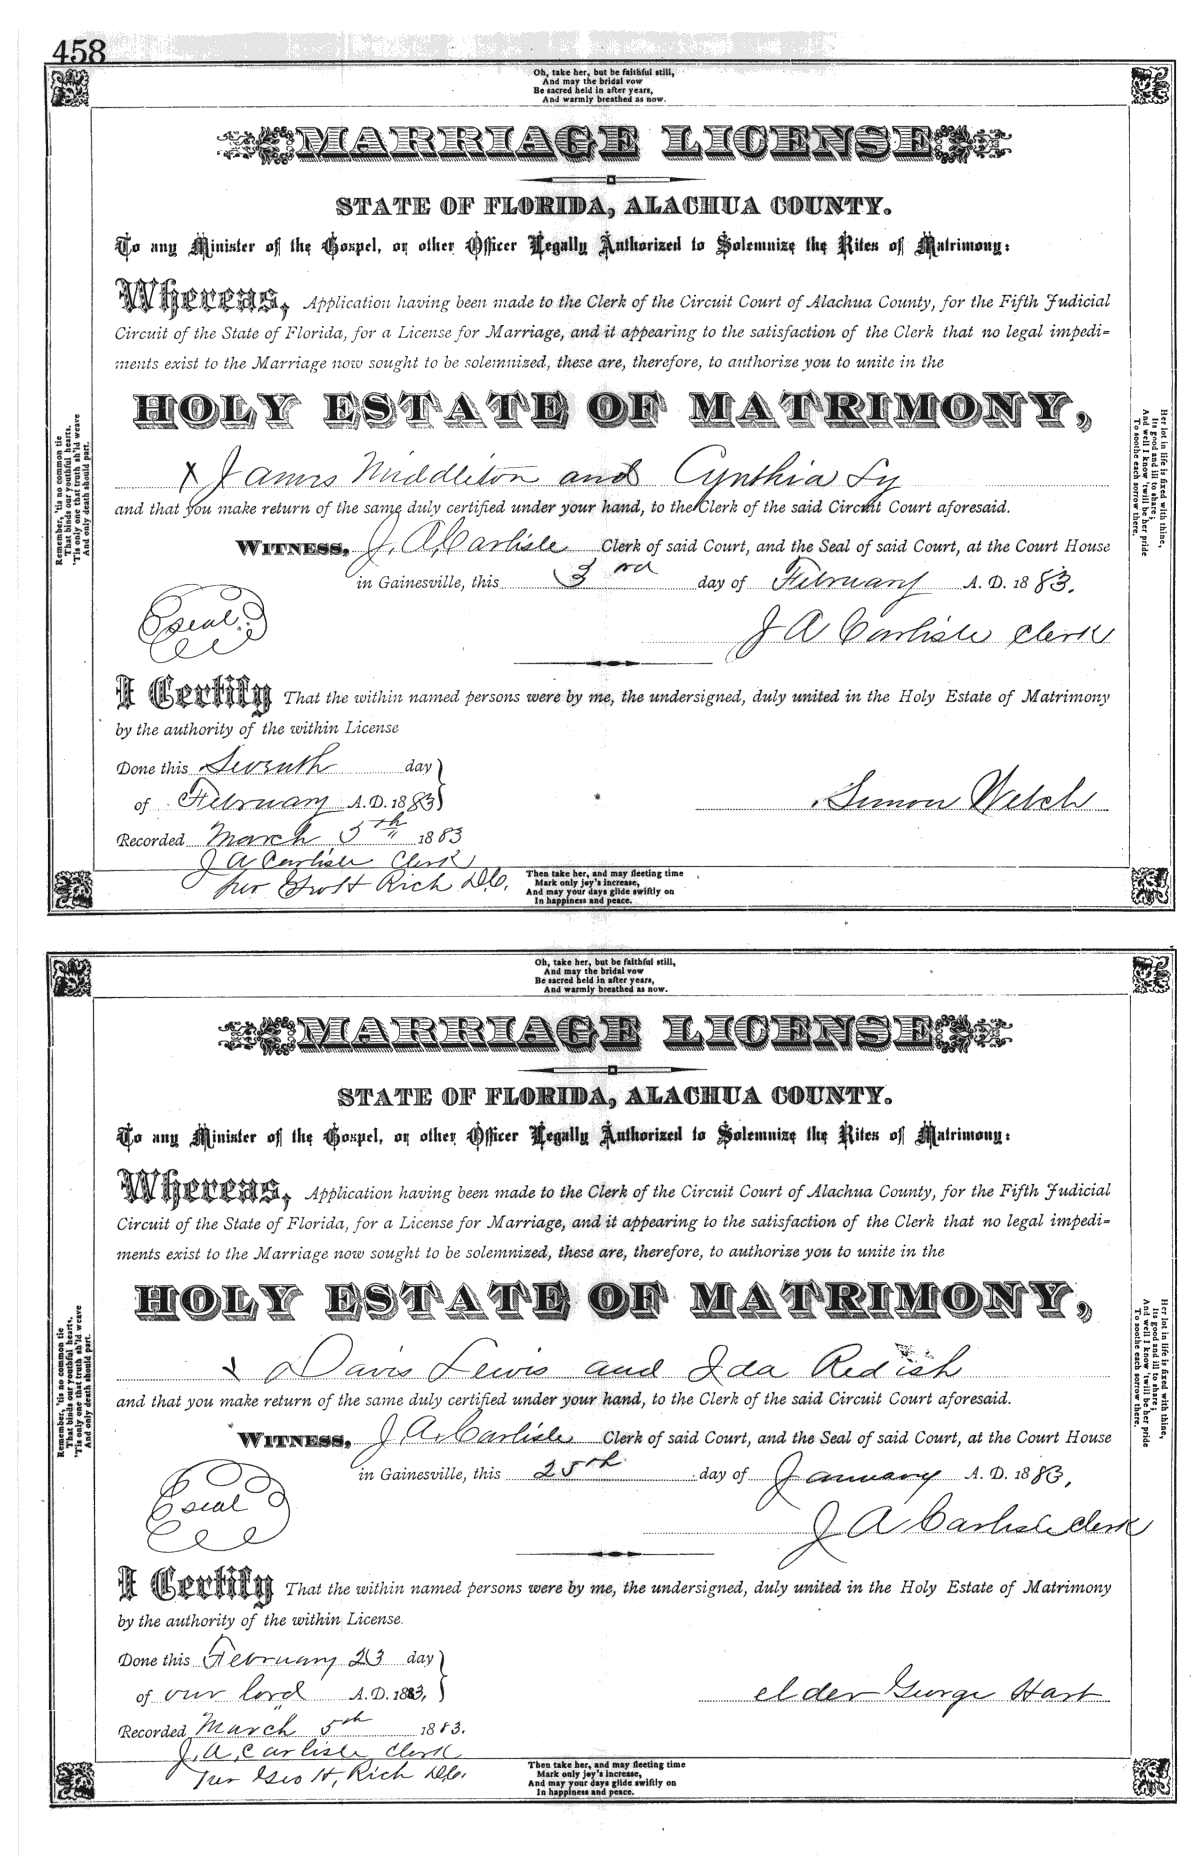 458
Oh, take her, but be faithful still,
And may the bridal vow
Be sacred held in after years,
And warmly breathed as now.
MARRIAGE LICENSE
STATE OF FLORIDA, ALACHUA COUNTY.
To any Minister of the Gospel, or other Officer Legally Authorized to Solemnize the Rites of Matrimony:
Whereas, Application having been made to the Clerk of the Circuit Court of Alachua County, for the Fifth Judicial
Circuit of the State of Florida, for a License for Marriage, and it appearing to the satisfaction of the Clerk that no legal impedi-
ments exist to the Marriage now sought to be solemnized, these are, therefore, to authorize you to unite in the
HOLY ESTATE OF MATRIMONY,
X James Middleton and Cynthia Ly
and that you make return of the same duly certified under your hand, to the Clerk of the said Circuit Court aforesaid.
WITNESS, J. A. Carlisle Clerk of said Court, and the Seal of said Court, at the Court House
in Gainesville, this 3rd day of February A. D. 1883.
seal
J A Carlisle Clerk
I Certify That the within named persons were by me, the undersigned, duly united in the Holy Estate of Matrimony
by the authority of the within License
Done this Seventh day
of February A.D. 1883
Simon Welch
Recorded March 5th 1883
J A Carlisle Clerk
per Geo H Rich D.C.
Then take her, and may fleeting time
Mark only joy's increase,
And may your days glide swiftly on
In happiness and peace.
Remember, 'tis no common tie
That binds our youthful hearts,
'Tis only one that truth sh'ld weave
And only death should part.
Her lot in life is fixed with thine,
Its good and ill to share;
And well I know 'twill be her pride
To soothe each sorrow there.
Oh, take her, but be faithful still,
And may the bridal vow
Be sacred held in after years,
And warmly breathed as now.
MARRIAGE LICENSE
STATE OF FLORIDA, ALACHUA COUNTY.
To any Minister of the Gospel, or other Officer Legally Authorized to Solemnize the Rites of Matrimony:
Whereas, Application having been made to the Clerk of the Circuit Court of Alachua County, for the Fifth Judicial
Circuit of the State of Florida, for a License for Marriage, and it appearing to the satisfaction of the Clerk that no legal impedi-
ments exist to the Marriage now sought to be solemnized, these are, therefore, to authorize you to unite in the
HOLY ESTATE OF MATRIMONY,
Davis Lewis and Ida Redish
and that you make return of the same duly certified under your hand, to the Clerk of the said Circuit Court aforesaid.
WITNESS, J. A. Carlisle Clerk of said Court, and the Seal of said Court, at the Court House
in Gainesville, this 25th day of January A. D. 1883.
seal
J A Carlisle Clerk
I Certify That the within named persons were by me, the undersigned, duly united in the Holy Estate of Matrimony
by the authority of the within License.
Done this February 23 day
of our lord A.D. 1883,
elder George Hart
Recorded March 5th 1883.
J. A. Carlisle Clerk
per Geo H, Rich D.C.
Then take her, and may fleeting time
Mark only joy's increase,
And may your days glide swiftly on
In happiness and peace.
Remember, 'tis no common tie
That binds our youthful hearts,
'Tis only one that truth sh'ld weave
And only death should part.
Her lot in life is fixed with thine,
Its good and ill to share;
And well I know 'twill be her pride
To soothe each sorrow there.